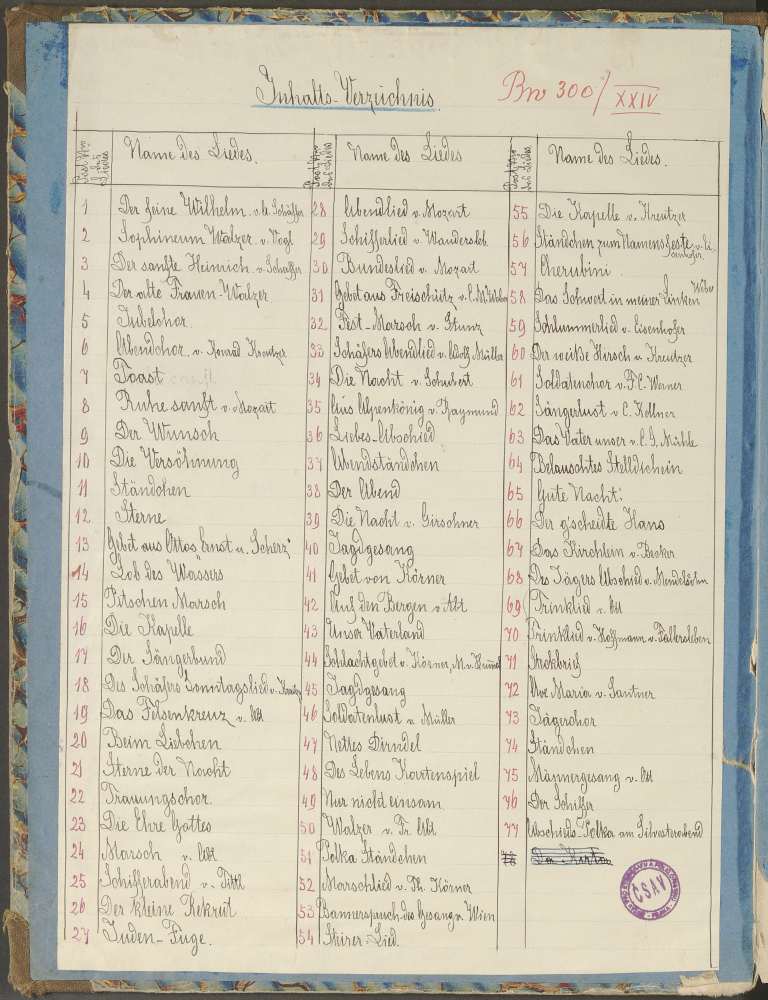 Inhalts-Verzeichnis.
Brn 300/XXIV
Name des Liedes.
1 Der feine Wilhelm v. Schäffer
2 Sophineum Walzer v. Vogl
3 Der sanfte Heinrich v. Schäffer
4 Der alte Frauen-Walzer
5 Jubelchor
6 Abendchor v. Konrad Kreutzer
7 Toast
8 Ruhe sanft v. Mozart
9 Der Wunsch
10 Die Versöhnung
11 Ständchen
12 Sterne
13 Gebet aus Ottos „Ernst u. Scherz"
14 Lob des Wassers
15 Fitschen Marsch
16 Die Kapelle
17 Der Sängerbund
18 Des Schäfers Sonntagslied v. Kreutz
19 Das Felsenkreuz v. Abt
20 Beim Liebchen
21 Sterne der Nacht
22 Trauungschor.
23 Die Ehre Gottes
24 Marsch v. Abt
25 Schifferabend v. Tittl
26 Der kleine Rekrut
27 Juden-Fuge.
Name des Liedes
28 Abendlied v. Mozart
29 Schifferlied v. Wandersleb
30 Bundeslied v. Mozart
31 Gebet aus Freischütz v. C. M. Weber
32 Fest-Marsch v. Stunz
33 Schäfers Abendlied v. Adolf Müller
34 Die Nacht v. Schubert
35 Aus Alpenkönig v. Raymund
36 Liebes-Abschied
37 Abendständchen
38 Der Abend
39 Die Nacht v. Girschner
40 Jagdgesang
41 Gebet von Körner
42 Auf den Bergen v. Abt
43 Unser Vaterland
44 Schlachtgebet v. Körner, M. v. Himmel
45 Jagdgesang
46 Soldatenlust v. Müller
47 Nettes Dirndel
48 Des Lebens Kartenspiel
49 Nur nicht einsam
50 Walzer v. Fr. Abt
51 Polka Ständchen
52 Marschlied v. Th. Körner
53 Bannerspruch des Gesang v. Wien
54 Steirer-Lied.
Name des Liedes.
55 Die Kapelle v. Kreutzer
56 Ständchen zum Namensfeste v. Eisenhofer
57 Cherubini
58 Das Schwert in meiner Linken Weber
59 Schlummerlied v. Eisenhofer
60 Der weiße Hirsch v. Kreutzer
61 Soldatenchor v. F. C. Werner
62 Sängerlust v. C. Kellner
63 Das Vater unser v. C. G. Mühle
64 Belauschtes Stelldichein
65 Gute Nacht!
66 Der g'scheidte Hans
67 Das Kirchlein v. Becker
68 Des Jägers Abschied v. Mendelsohn
69 Trinklied v. Abt
70 Trinklied v. Hoffmann v. Fallersleben
71 Steckbrief
72 Ave Maria v. Santner
73 Jägerchor
74 Ständchen
75 Männergesang v. Abt
76 Der Schiffer
77 Abschieds-Polka am Silvesterabend
78
ČSAV